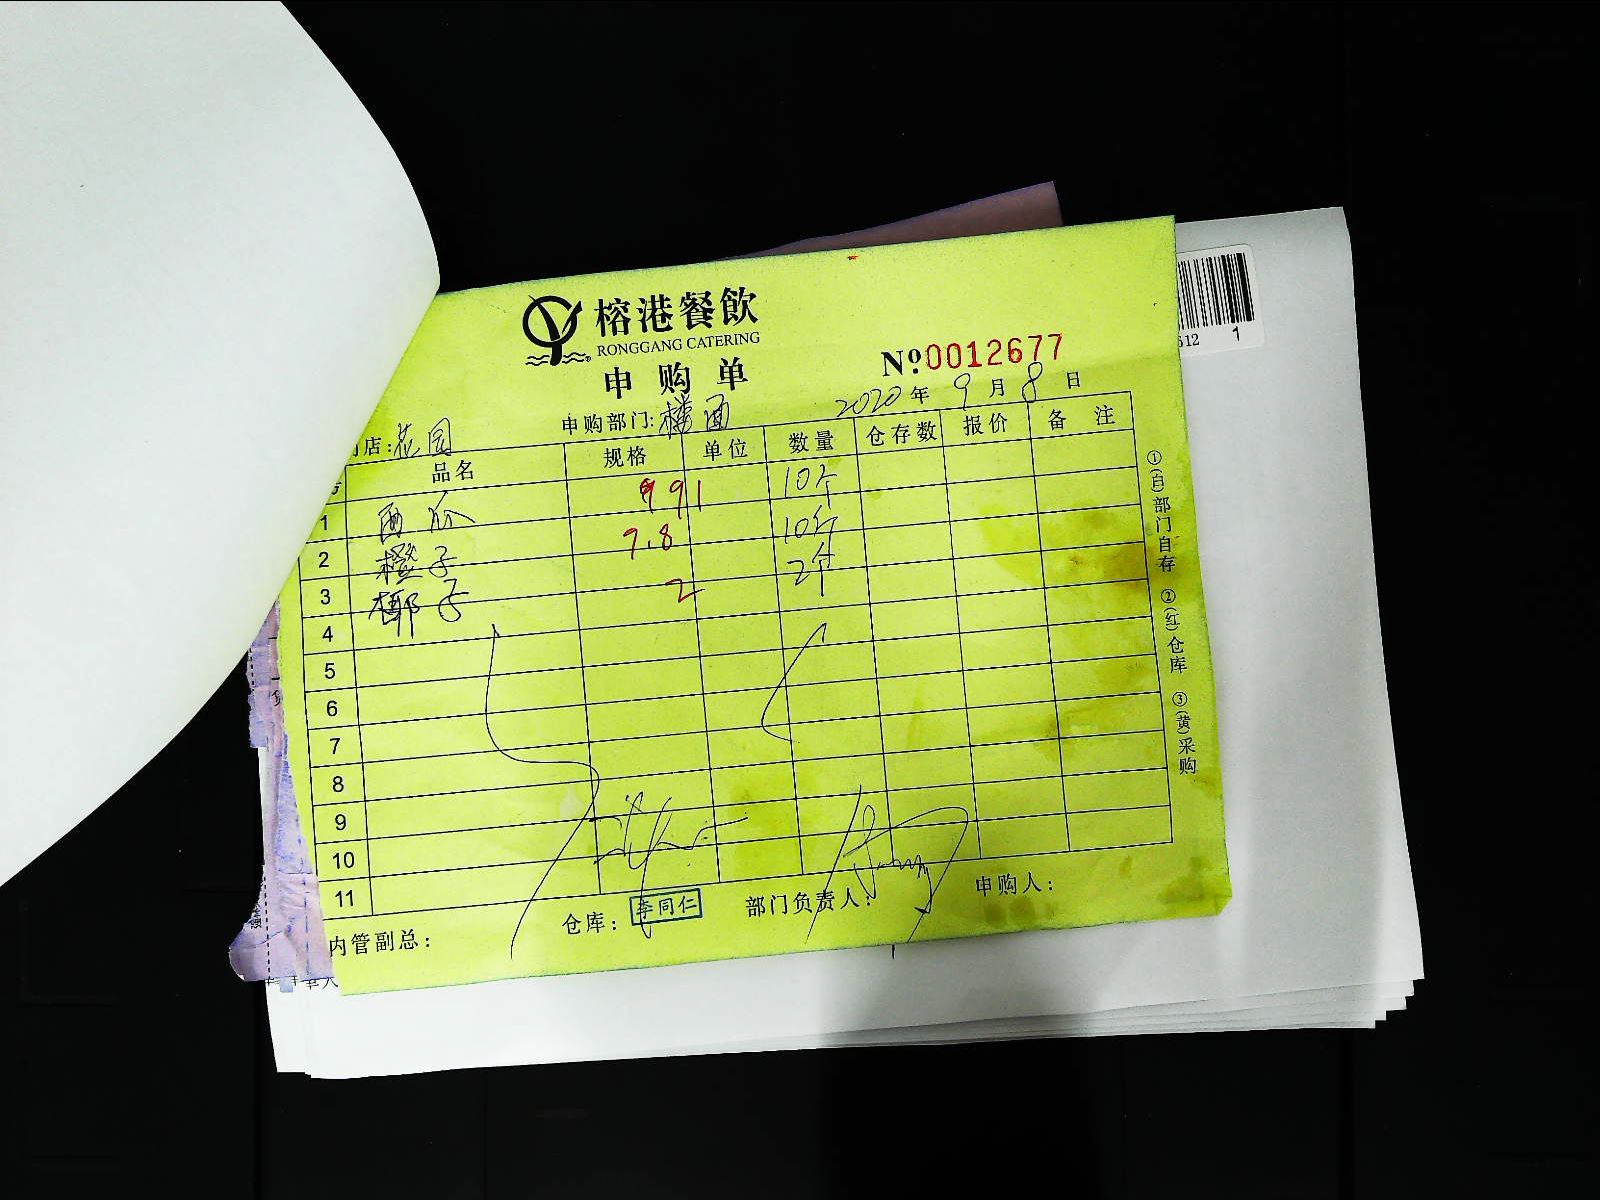 榕港餐飲
RONGGANG CATERING
申购单
№:0012677
店:花园 申购部门:楼面 2020年9月8日
品名 规格 单位 数量 仓存数 报价 备注
1 西瓜 991 10个
2 橙子 7.8 10斤
3 椰子 2 2个
4
5
6
7
8
9
10
11
内管副总: 仓库: 李同仁 部门负责人: 申购人:
①(白)部门自存 ②(红)仓库 ③(黄)采购
612 1